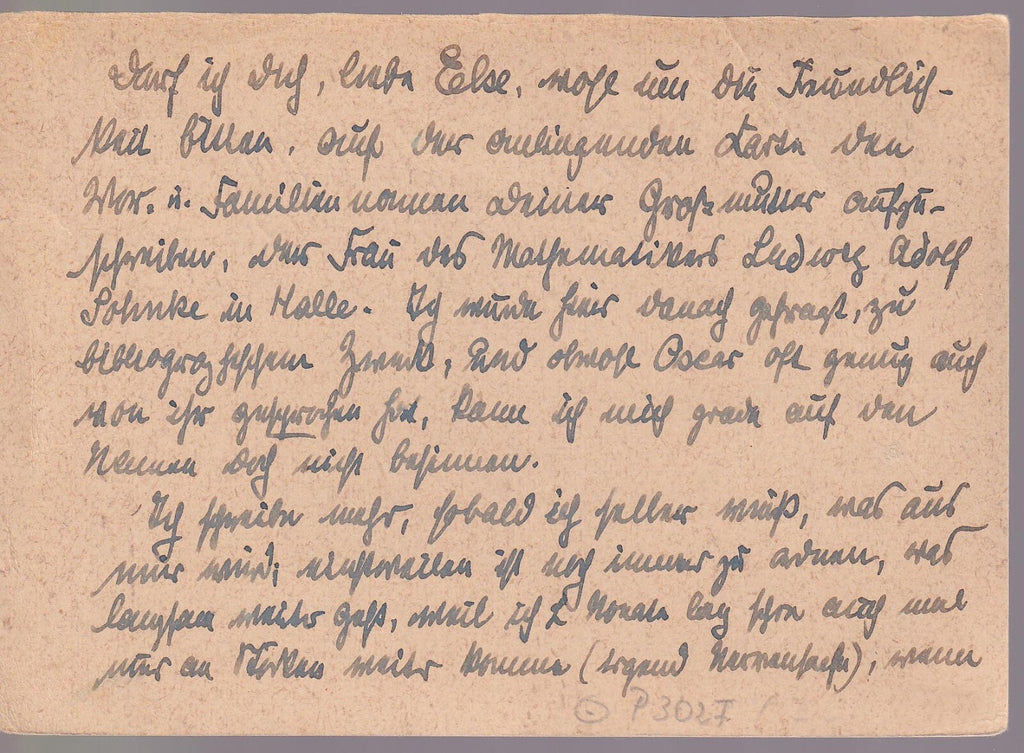 Darf ich Dich, liebe Else, wohl um die Freundlich-
keit bitten, auf der anliegenden Karte den
Vor. u. Familiennamen Deiner Großmutter aufzu-
schreiben, der Frau des Mathematikers Ludwig Adolf
Sohnke in Halle. Ich wurde hier danach gefragt, zu
bibliographischem Zweck, und obwohl Oscar oft genug auch
von ihr gesprochen hat, kann ich mich grade auf den
Namen doch nicht besinnen.
Ich schreibe mehr, sobald ich selber weiß, was aus
mir wird; einstweilen ist noch immer zu ordnen, was
langsam weiter geht, weil ich Monate lang schon auch mal
nur an Stöcken weiter komme (irgend Nervensache), wenn
P 3027